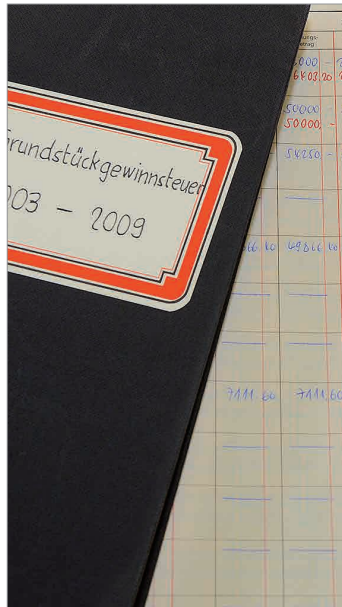 rundstückgewinnsteuer
03 - 2009
50000 -
50000, -
54250 -
66.10 49866 10
7111.60 7111.60